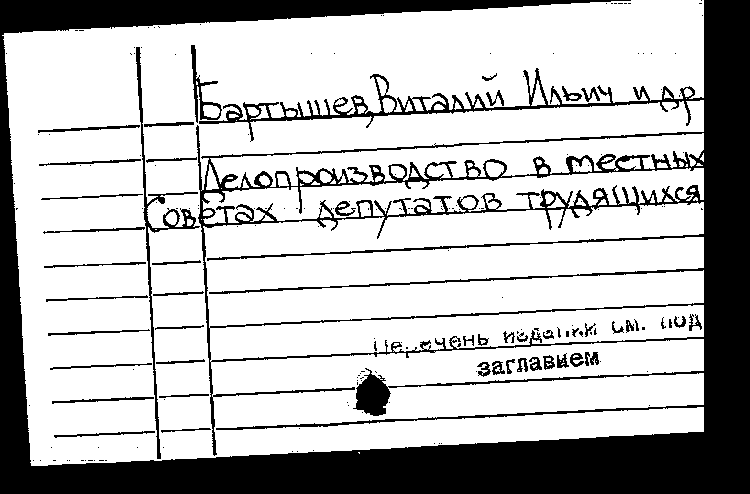 Бартышев, Виталий Ильич и др
Делопроизводство в местных
Советах депутатов трудящихся
Перечень изданий см. под
заглавием